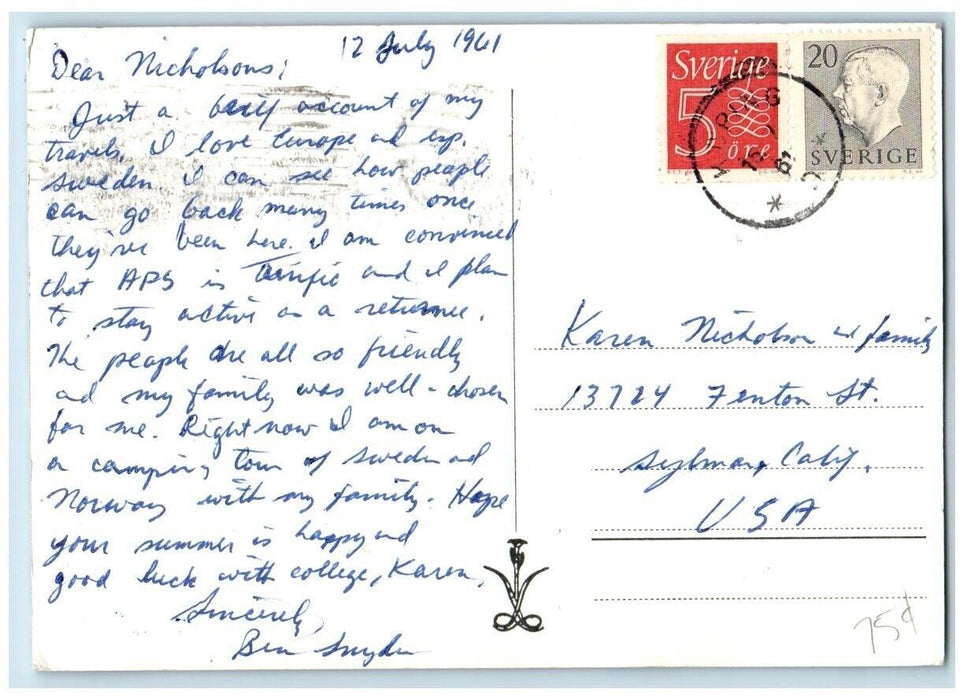 12 July 1961
Dear Nicholsons;
Just a brief account of my
travels. I love Europe and esp.
Sweden. I can see how people
can go back many times once
they've been here. I am convinced
that AFS is terrific and I plan
to stay active as a returnee.
The people are all so friendly
and my family was well-chosen
for me. Right now I am on
a camping tour of Sweden and
Norway with my family. Hope
your summer is happy and
good luck with college, Karen.
Sincerely,
Ben Snyder
Sverige
5
öre
20
SVERIGE
Karen Nicholson and family
13724 Fenton St.
Sylmar, Calif.
USA
75¢